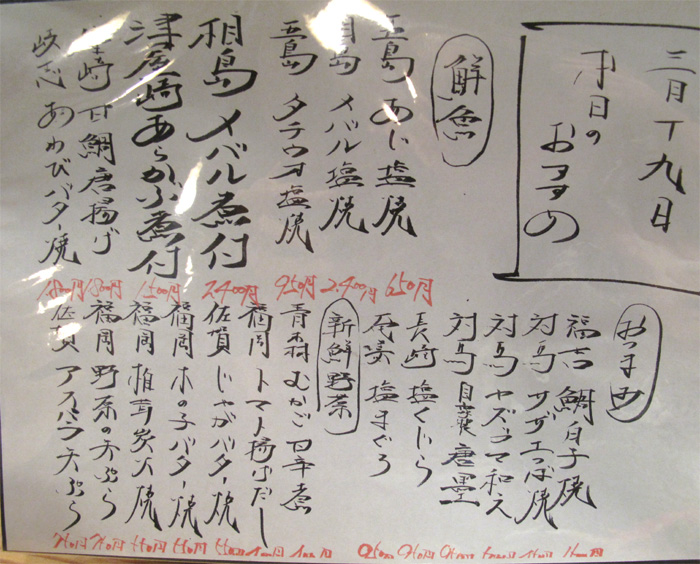 三月十九日
本日の
おすすめ
鮮魚
五島 あじ塩焼 650円
相島 メバル塩焼 2.400円
五島 タチウオ塩焼 950円
相島 メバル煮付 2.400円
津屋崎 あらかぶ煮付 1.500円
津屋崎 甘鯛唐揚げ 1.800円
岐志 あわびバター焼
おつまみ
福吉 鯛白子焼
対馬 サザエつぼ焼
対馬 ヤズゴマ和え
対馬 自家製唐墨
長崎 塩くじら
塩まぐろ
新鮮野菜
青森 むかご甘辛煮
福岡 トマト揚げだし
佐賀 じゃがバター焼
福岡 木の子バター焼
福岡 椎茸炭火焼
福岡 野菜の天ぷら
佐賀 アスパラ天ぷら